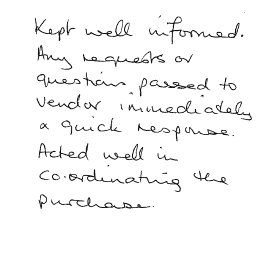 Kept well informed.
Any requests or
questions passed to
vendor immediately
a quick response.
Acted well in
co-ordinating the
purchase.